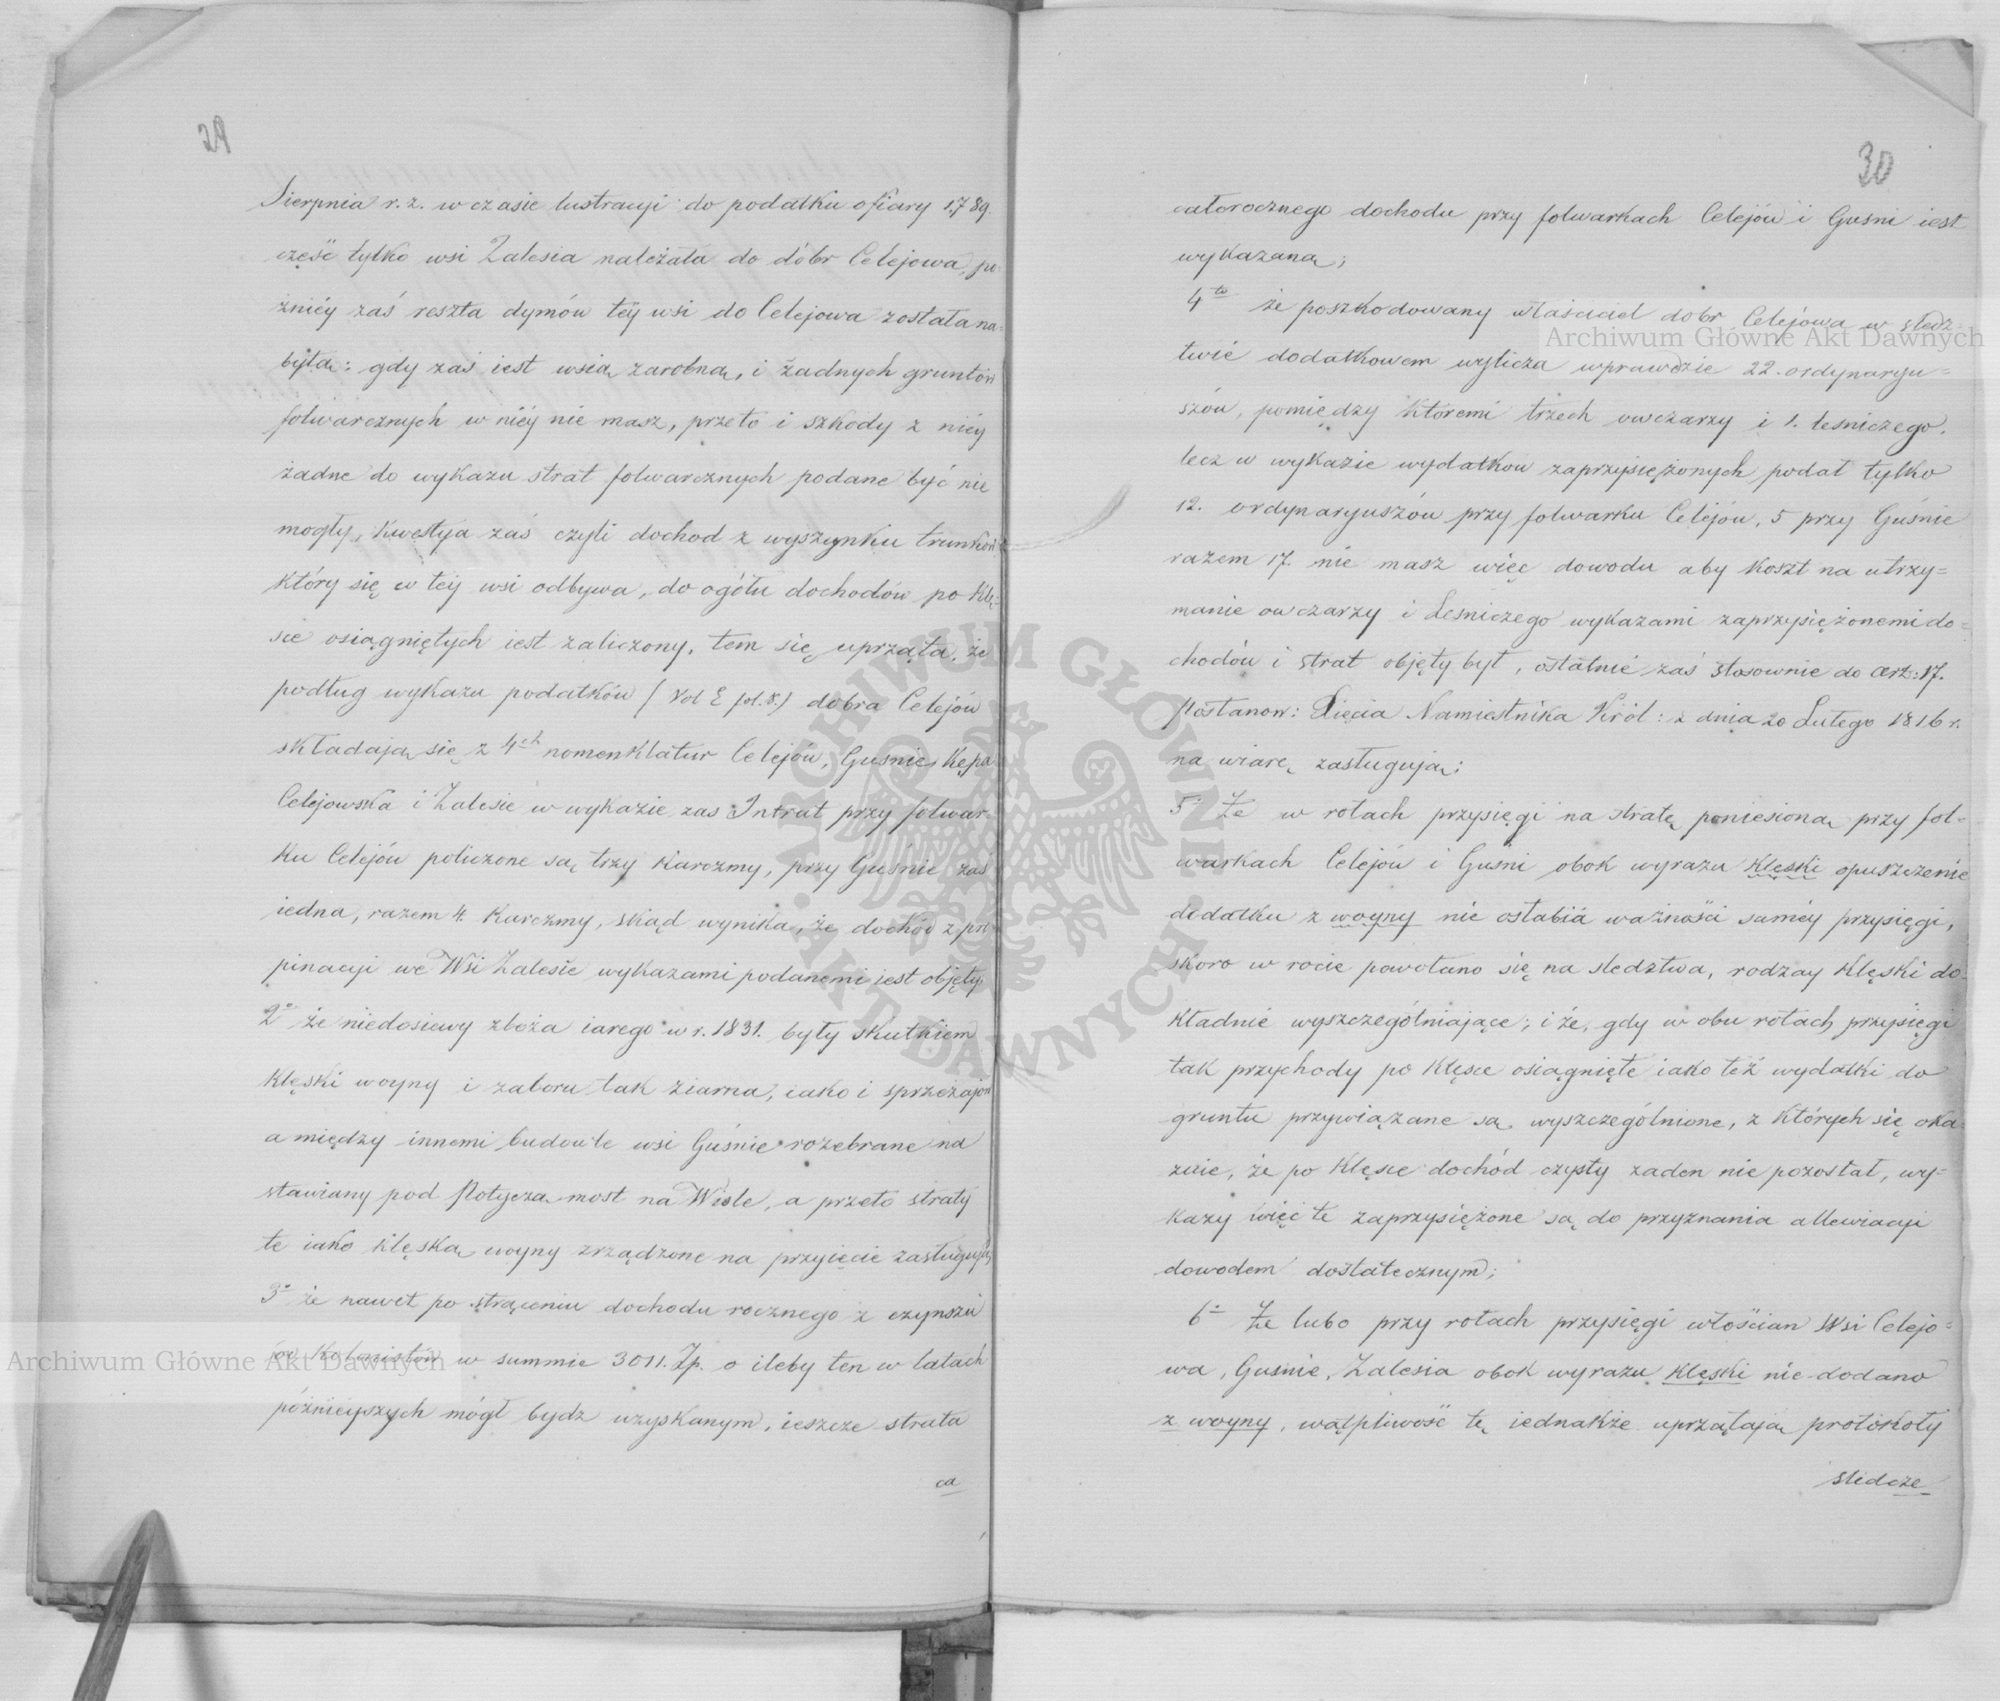 29
Sierpnia r. z. w czasie lustracyi do podatku ofiary 1789.
część tylko wsi Zalesia należała do dóbr Celejowa, po-
źniéy zaś reszta dymów téy wsi do Celejowa została na-
bytą: gdy zaś iest wsią zarobną, i żadnych gruntów
folwarcznych w niéy nie masz, przeto i szkody z niéy
żadne do wykazu strat folwarcznych podane być nie
mogły, kwestya zaś czyli dochod z wyszynku trunków
który się w téy wsi odbywa, do ogółu dochodów po klę-
sce osiągniętych iest zaliczony, tem się uprząta, że
podług wykazu podatków (Vol E fol. 8.) dobra Celejów
składają się z 4ch nomenklatur Celejów, Guśnie, Kępa
Celejowska i Zalesie w wykazie zas Intrat przy folwar-
ku Celejów policzone są trzy karczmy, przy Guśnie zaś
iedna, razem 4. Karczmy, skąd wynika, że dochód z pro-
pinacyi we Wsi Zalesie wykazami podanemi iest objęty
2o że niedosiewy zboża iarego w r. 1831. były skutkiem
klęski woyny i zaboru tak ziarna, iako i sprzężajów
a między innemi budowle wsi Guśnie rozebrane na
stawiany pod Potyczą most na Wisle, a przeto straty
te iako klęską woyny zrządzone na przyięcie zasługują
3o że nawet po strąceniu dochodu rocznego z czynszu
ów Kolonistów w summie 3011. Zp. o ileby ten w latach
późnieyszych mógł bydz uzyskanym, ieszcze strata
ca
30
całorocznego dochodu przy folwarkach Celejów i Guśni iest
wykazaną;
4to że poszkodowany właściciel dobr Celejowa w sledz-
twie dodatkowem wylicza wprawdzie 22. ordynaryu-
szów, pomiędzy któremi trzech owczarzy i 1. lesniczego.
lecz w wykazie wydatkow zaprzysiężonych podał tylko
12. ordynaryuszów przy folwarku Celejów, 5 przy Guśnie
razem 17. nie masz więc dowodu aby koszt na utrzy-
manie owczarzy i Lesniczego wykazami zaprzysiężonemi do-
chodów i strat objęty był, ostatnie zaś stosownie do art: 17.
Postanow: Xięcia Namiestnika Król: z dnia 20 Lutego 1816 r.
na wiarę zasługują;
5o Że w rotach przysięgi na stratę poniesioną przy fol-
warkach Celejów i Guśni obok wyrazu klęski opuszczenie
dodatku z woyny nie osłabia ważności saméy przysięgi,
skoro w rocie powołano się na sledztwa, rodzay klęski do-
kładnie wyszczególniające; i że, gdy w obu rotach przysięgi
tak przychody po klęsce osiągnięte iako też wydatki do
gruntu przywiązane są wyszczególnione, z których się oka-
zuie, że po klęsce dochód czysty zaden nie pozostał, wy-
kazy więc te zaprzysiężone są do przyznania allewiacyi
dowodem dostatecznym;
6o Że lubo przy rotach przysięgi włościan Wsi Celejo-
wa, Guśnie, Zalesia obok wyrazu klęski nie dodano
z woyny, wątpliwość tę iednakże uprzątają protokoły
sledcze
Archiwum Główne Akt Dawnych
Archiwum Główne Akt Dawnych
ARCHIWUM GŁÓWNE AKT DAWNYCH